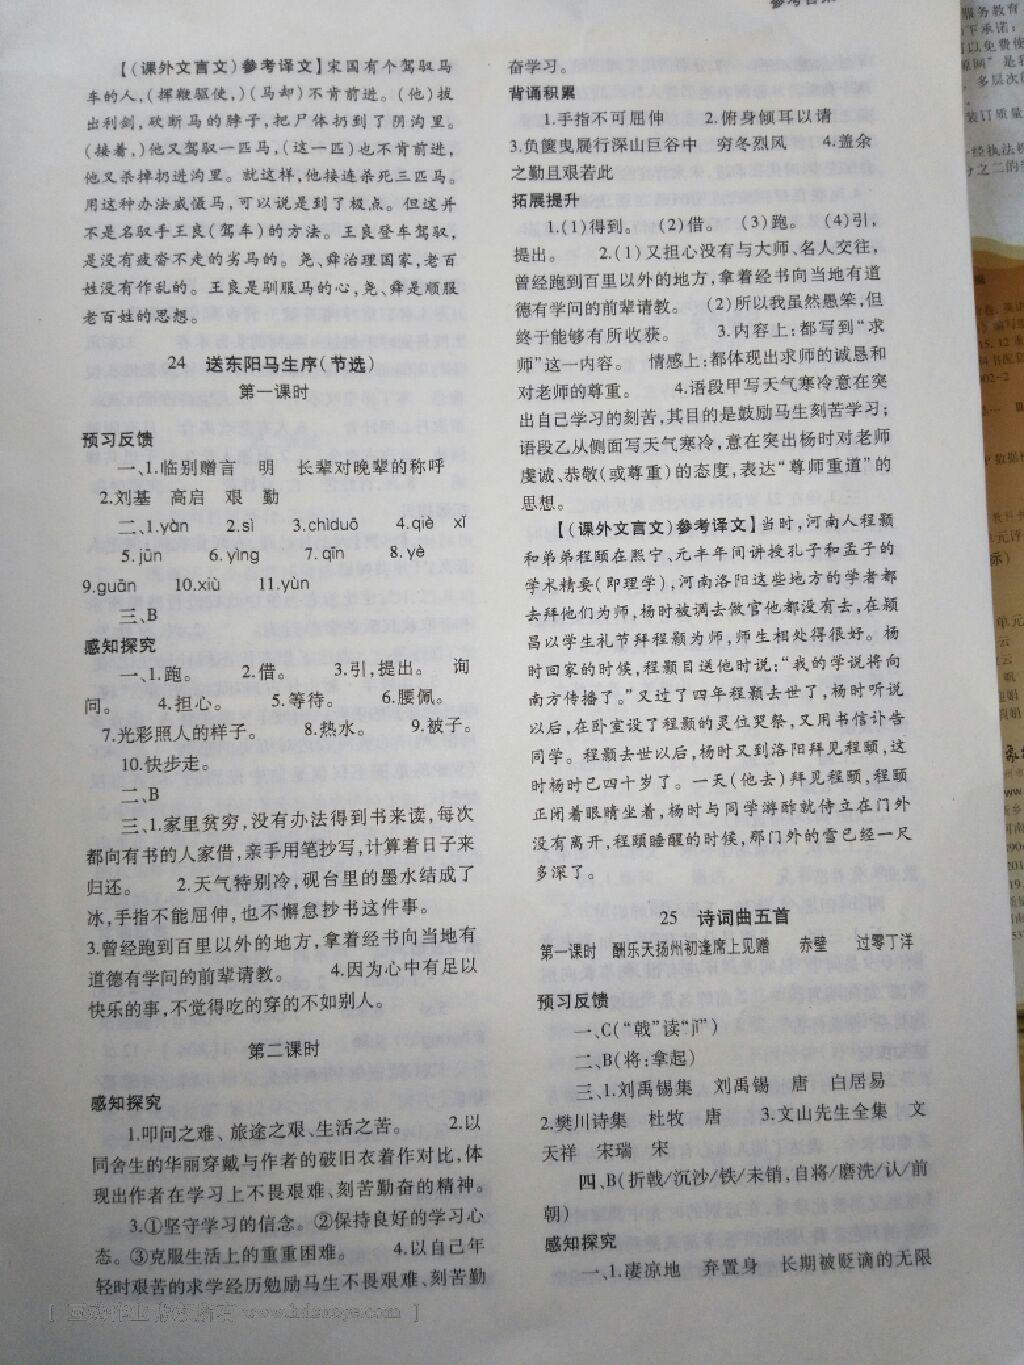 参考答案
【(课外文言文)参考译文】宋国有个驾驭马
车的人,(挥鞭驱使,)(马却)不肯前进。(他)拔
出利剑,砍断马的脖子,把尸体扔到了阴沟里。
(接着,)他又驾驭一匹马,(这一匹)也不肯前进,
他又杀掉扔进沟里。就这样,他接连杀死三匹马。
用这种办法威慑马,可以说是到了极点。但这并
不是名驭手王良(驾车)的方法。王良登车驾驭,
是没有疲沓不走的劣马的。尧、舜治理国家,老百
姓没有作乱的。王良是驯服马的心,尧、舜是顺服
老百姓的思想。
24 送东阳马生序(节选)
第一课时
预习反馈
一、1.临别赠言 明 长辈对晚辈的称呼
2.刘基 高启 艰 勤
二、1.yàn 2.sì 3.chìduō 4.qiè xǐ
5.jūn 6.yìng 7.qīn 8.yè
9.guān 10.xiù 11.yùn
三、B
感知探究
一、1.跑。 2.借。 3.引,提出。 询
问。 4.担心。 5.等待。 6.腰佩。
7.光彩照人的样子。 8.热水。 9.被子。
10.快步走。
二、B
三、1.家里贫穷,没有办法得到书来读,每次
都向有书的人家借,亲手用笔抄写,计算着日子来
归还。 2.天气特别冷,砚台里的墨水结成了
冰,手指不能屈伸,也不懈怠抄书这件事。
3.曾经跑到百里以外的地方,拿着经书向当地有
道德有学问的前辈请教。 4.因为心中有足以
快乐的事,不觉得吃的穿的不如别人。
第二课时
感知探究
1.叩问之难、旅途之艰、生活之苦。 2.以
同舍生的华丽穿戴与作者的破旧衣着作对比,体
现出作者在学习上不畏艰难、刻苦勤奋的精神。
3.①坚守学习的信念。②保持良好的学习心
态。③克服生活上的重重困难。 4.以自己年
轻时艰苦的求学经历勉励马生不畏艰难、刻苦勤
奋学习。
背诵积累
1.手指不可屈伸 2.俯身倾耳以请
3.负箧曳屣行深山巨谷中 穷冬烈风 4.盖余
之勤且艰若此
拓展提升
1.(1)得到。 (2)借。 (3)跑。 (4)引,
提出。 2.(1)又担心没有与大师、名人交往,
曾经跑到百里以外的地方,拿着经书向当地有道
德有学问的前辈请教。 (2)所以我虽然愚笨,但
终于能够有所收获。 3.内容上:都写到“求
师”这一内容。 情感上:都体现出求师的诚恳和
对老师的尊重。 4.语段甲写天气寒冷意在突
出自己学习的刻苦,其目的是鼓励马生刻苦学习;
语段乙从侧面写天气寒冷,意在突出杨时对老师
虔诚、恭敬(或尊重)的态度,表达“尊师重道”的
思想。
【(课外文言文)参考译文】当时,河南人程颢
和弟弟程颐在熙宁、元丰年间讲授孔子和孟子的
学术精要(即理学),河南洛阳这些地方的学者都
去拜他们为师,杨时被调去做官他都没有去,在颍
昌以学生礼节拜程颢为师,师生相处得很好。杨
时回家的时候,程颢目送他时说:“我的学说将向
南方传播了。”又过了四年程颢去世了,杨时听说
以后,在卧室设了程颢的灵位哭祭,又用书信讣告
同学。程颢去世以后,杨时又到洛阳拜见程颐,这
时杨时已四十岁了。一天(他去)拜见程颐,程颐
正闭着眼睛坐着,杨时与同学游酢就侍立在门外
没有离开,程颐睡醒的时候,那门外的雪已经一尺
多深了。
25 诗词曲五首
第一课时 酬乐天扬州初逢席上见赠 赤壁 过零丁洋
预习反馈
一、C(“戟”读“jǐ”)
二、B(将:拿起)
三、1.刘禹锡集 刘禹锡 唐 白居易
2.樊川诗集 杜牧 唐 3.文山先生全集 文
天祥 宋瑞 宋
四、B(折戟/沉沙/铁/未销,自将/磨洗/认/前
朝)
感知探究
一、1.凄凉地 弃置身 长期被贬谪的无限